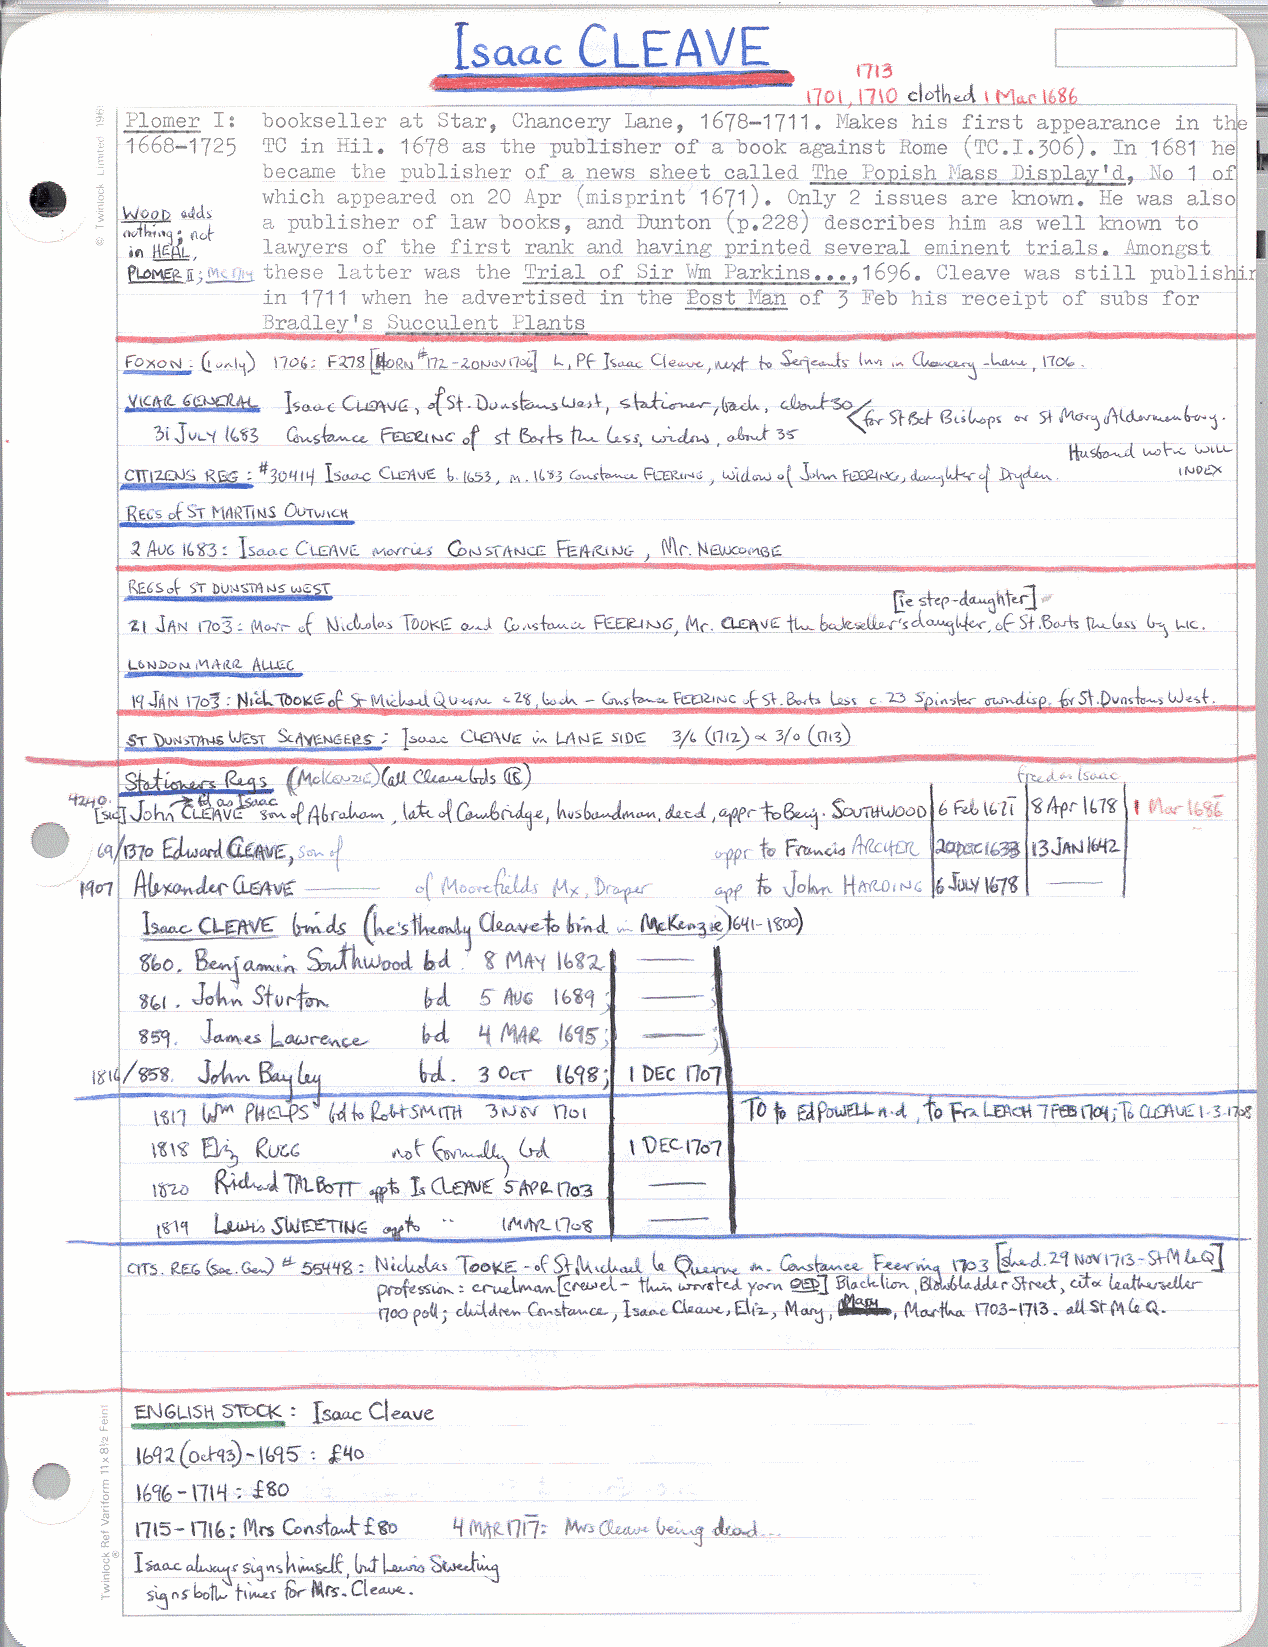 Isaac CLEAVE
1713
1701, 1710 clothed 1 Mar 1686
Plomer I: bookseller at Star, Chancery Lane, 1678-1711. Makes his first appearance in the
1668-1725 TC in Hil. 1678 as the publisher of a book against Rome (TC.I.306). In 1681 he
became the publisher of a news sheet called The Popish Mass Display'd, No 1 of
which appeared on 20 Apr (misprint 1671). Only 2 issues are known. He was also
WOOD adds a publisher of law books, and Dunton (p.228) describes him as well known to
nothing; not
in HEAL, lawyers of the first rank and having printed several eminent trials. Amongst
PLOMER II; McDly these latter was the Trial of Sir Wm Parkins...,1696. Cleave was still publishin
in 1711 when he advertised in the Post Man of 3 Feb his receipt of subs for
Bradley's Succulent Plants
FOXON: (1 only) 1706: F278 [HORN #172-20NOV1706] L, Pf Isaac Cleave, next to Serjeants Inn in Chancery-Lane, 1706.
VICAR GENERAL Isaac CLEAVE, of St. Dunstans West, stationer, bach, about 30
31 JULY 1683 Constance FEERING of St Barts the Less, widow, about 35
for St Bot Bishops or St Mary Aldermanbury.
Husband not in WILL INDEX
CITIZENS REG: #30414 Isaac CLEAVE b. 1653, m. 1683 Constance FEERING, widow of John FEERING, daughter of Dryden.
REGS of ST MARTINS OUTWICH
2 AUG 1683: Isaac CLEAVE marries CONSTANCE FEARING, Mr. NEWCOMBE
REGS of ST DUNSTANS WEST
[ie step-daughter]
21 JAN 1703: Marr of Nicholas TOOKE and Constance FEERING, Mr. CLEAVE the bookseller's daughter, of St. Barts the Less by LIC.
LONDON MARR ALLEG
19 JAN 1703: Nich TOOKE of St Michael Querne c 28, bach - Constance FEERING of St. Barts Less c. 23 Spinster own disp. for St. Dunstans West.
ST DUNSTANS WEST SCAVENGERS: Isaac CLEAVE in LANE SIDE 3/6 (1712) & 3/0 (1713)
Stationers Regs (McKENZIE) (all Cleave bds ®)
freed as Isaac
4240. [sic] John CLEAVE fd as Isaac son of Abraham, late of Cambridge, husbandman, decd, appr to Benj. SOUTHWOOD 6 Feb 1671 8 Apr 1678 1 Mar 1686
69/1370 Edward CLEAVE, son of appr to Francis ARCHER 20 DEC 1633 13 JAN 1642
1907 Alexander CLEAVE — of Moorefields Mx, Draper app to John HARDING 6 JULY 1678 —
Isaac CLEAVE binds (he's the only Cleave to bind in McKenzie) 1641-1800)
860. Benjamin Southwood bd. 8 MAY 1682 —
861. John Sturton bd 5 AUG 1689; —
859. James Lawrence bd. 4 MAR 1695; —
1816/858. John Bayley bd. 3 OCT 1698; 1 DEC 1707
1817 Wm PHELPS bd to Robt SMITH 3 NOV 1701 TO to Ed POWELL n.d, to Fra LEACH 7 FEB 1704; To CLEAVE 1-3-1708
1818 Eliz RUGG not formally bd 1 DEC 1707
1820 Richard TALBOTT app to Is CLEAVE 5 APR 1703 —
1819 Lewis SWEETING app to " 1 MAR 1708 —
CITS. REG (Soc. Gen) # 55448: Nicholas TOOKE - of St. Michael le Querne m. Constance Feering 1703 [she d. 29 NOV 1713-St M le Q]
profession: cruelman [crewel - thin worsted yarn OED] Black lion, Blowbladder Street, cit & leatherseller
1700 poll; children Constance, Isaac Cleave, Eliz, Mary, Martha 1703-1713. all St M le Q.
ENGLISH STOCK: Isaac Cleave
1692 (Oct 93)-1695: £40
1696-1714: £80
1715-1716: Mrs Constant £80 4 MAR 1717: Mrs Cleave being dead...
Isaac always signs himself, but Lewis Sweeting
signs both times for Mrs. Cleave.
© Twinlock Limited 196
Twinlock Ref Variform 11 x 8½ Feint